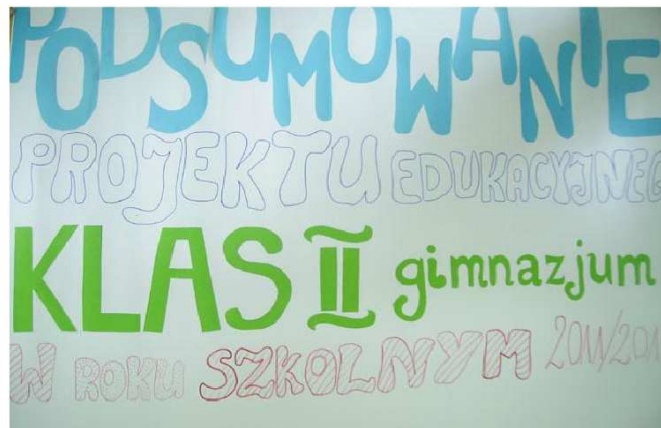 PODSUMOWANIE
PROJEKTU EDUKACYJNEG
KLAS II gimnazjum
W ROKU SZKOLNYM 2011/201